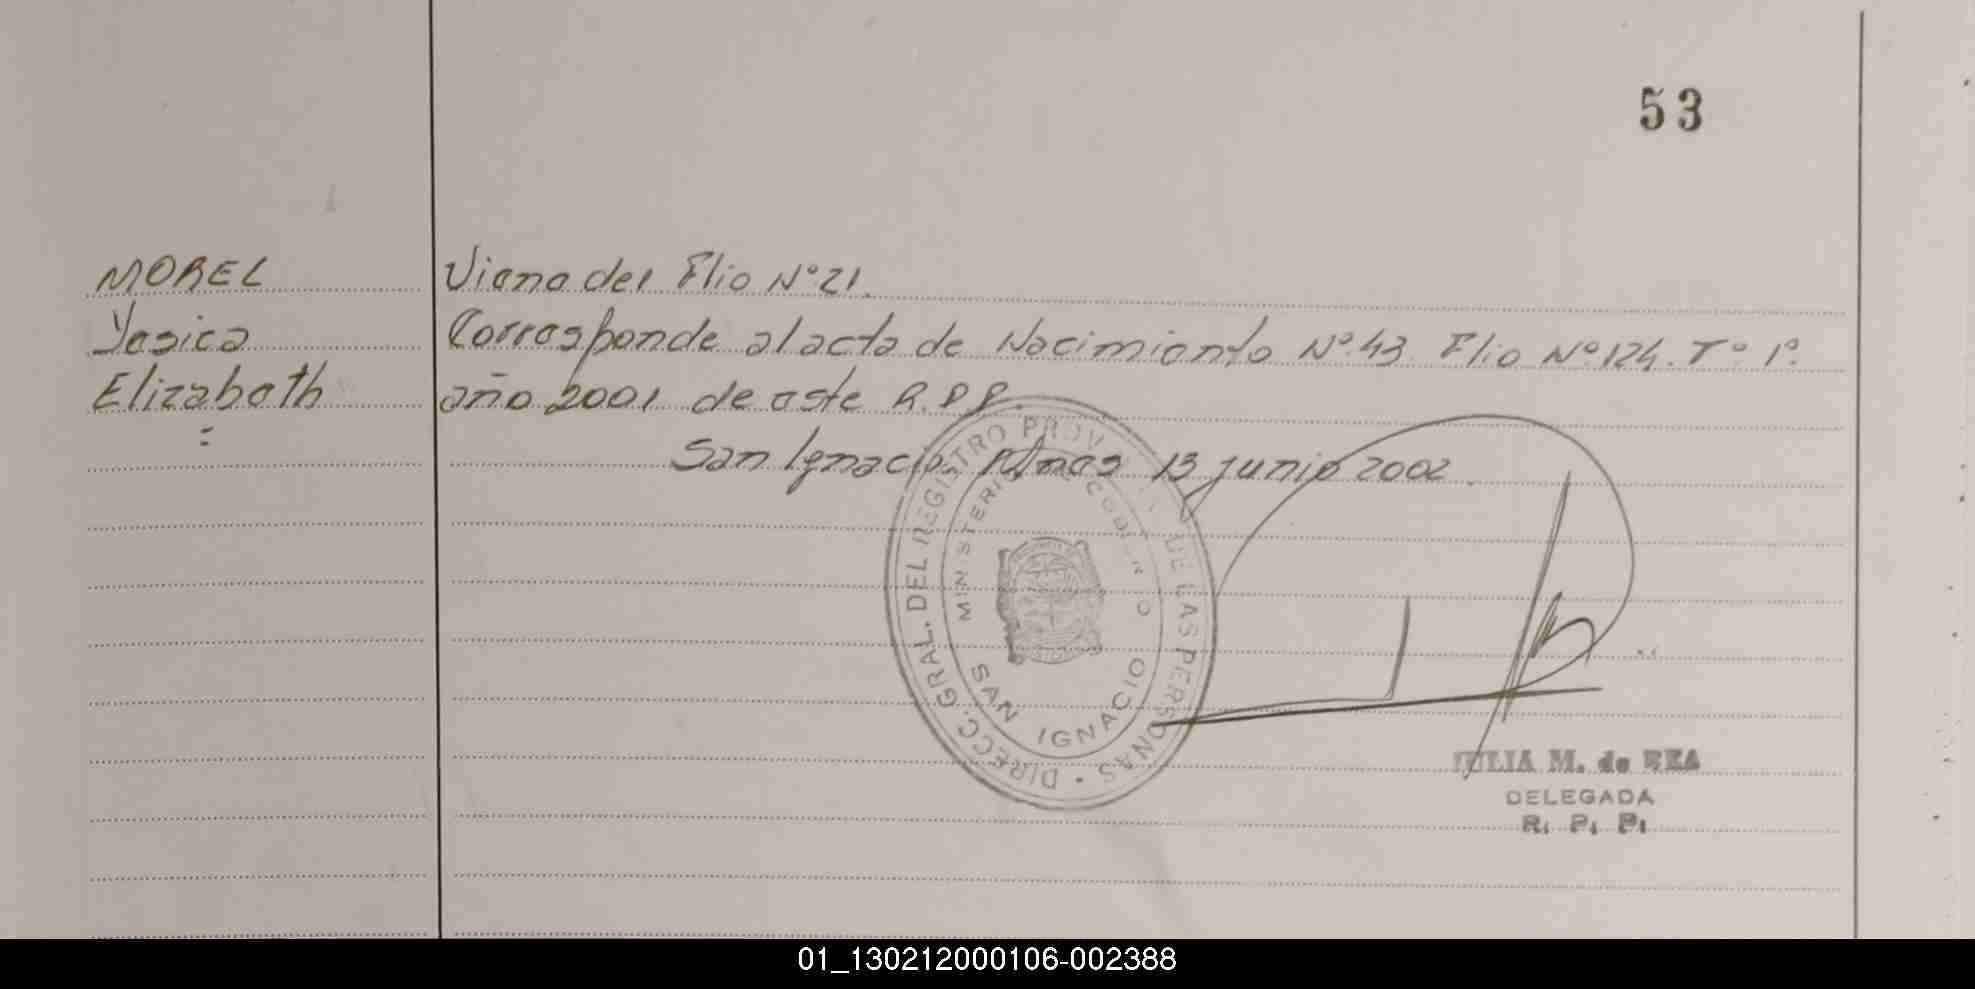 53
MOREL
Yesica
Elizabeth
=
Viene del Flio Nº 21.
Corresponde al acta de Nacimiento Nº 43 Flio Nº 124. Tº 1º.
año 2001 de este R.P.P.
San Ignacio. Mnes 13 junio 2002.
DIRECC. GRAL. DEL REGISTRO PROV. DE LAS PERSONAS
MINISTERIO DE GOBIERNO
SAN IGNACIO
JULIA M. de REA
DELEGADA
R. P. P.
01_130212000106-002388